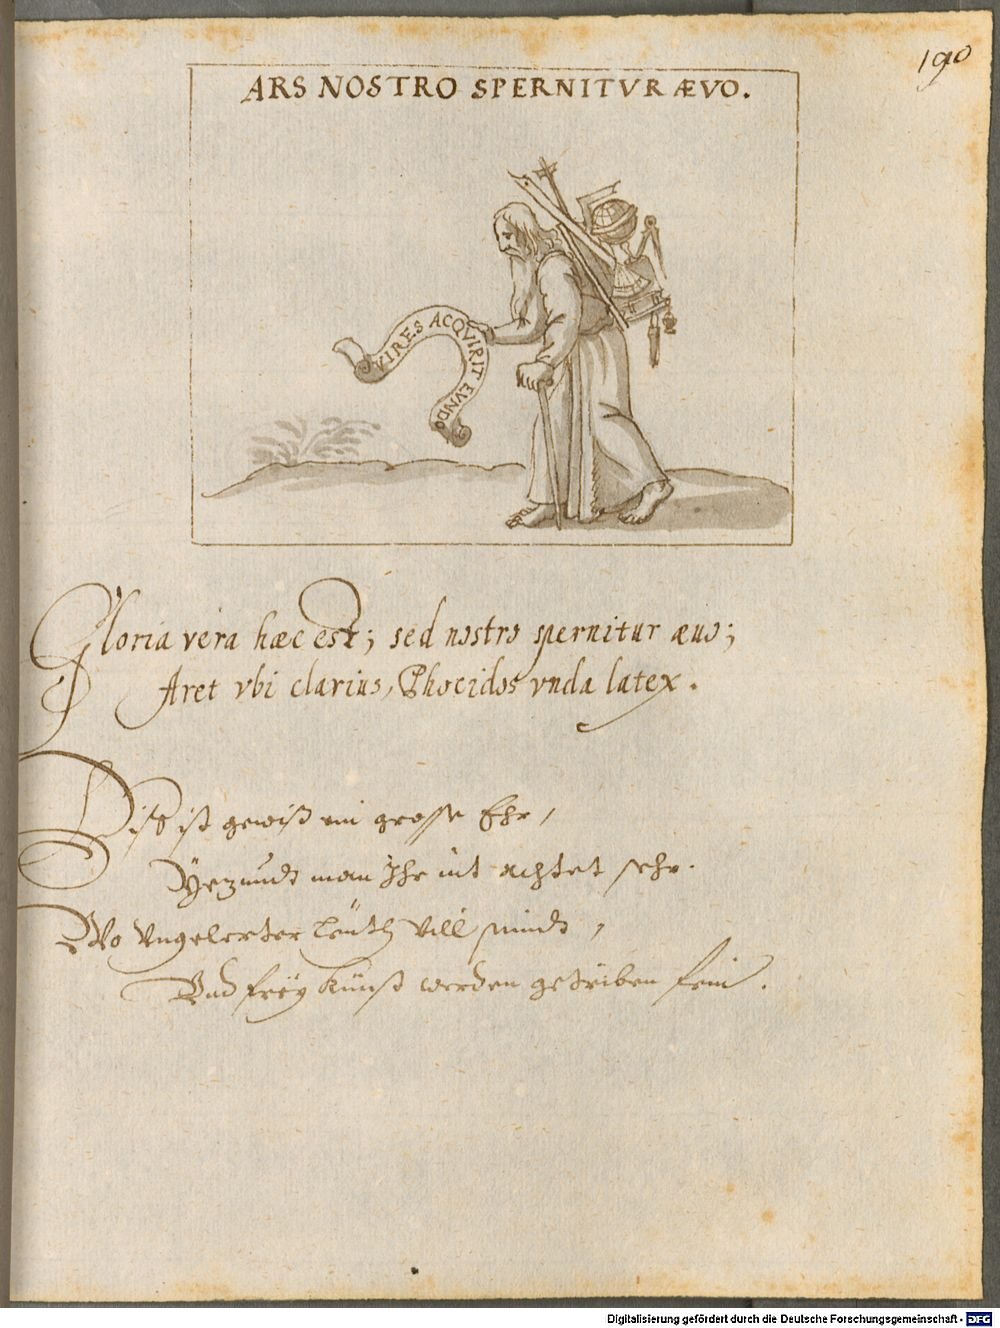 190
ARS NOSTRO SPERNITVR ÆVO.
VIRES ACQVIRIT EVNDO
Gloria vera hæc est; sed nostro spernitur æuo;
Aret vbi clarius, Phocidos vnda latex.
Diß ist gewiß ein grosse Ehr,
Yetzundt man Ihr nit achtet sehr.
Wo Vngelerter Leüth vill seindt,
Vnd freÿ Künst werden getriben fein.
Digitalisierung gefördert durch die Deutsche Forschungsgemeinschaft - DFG